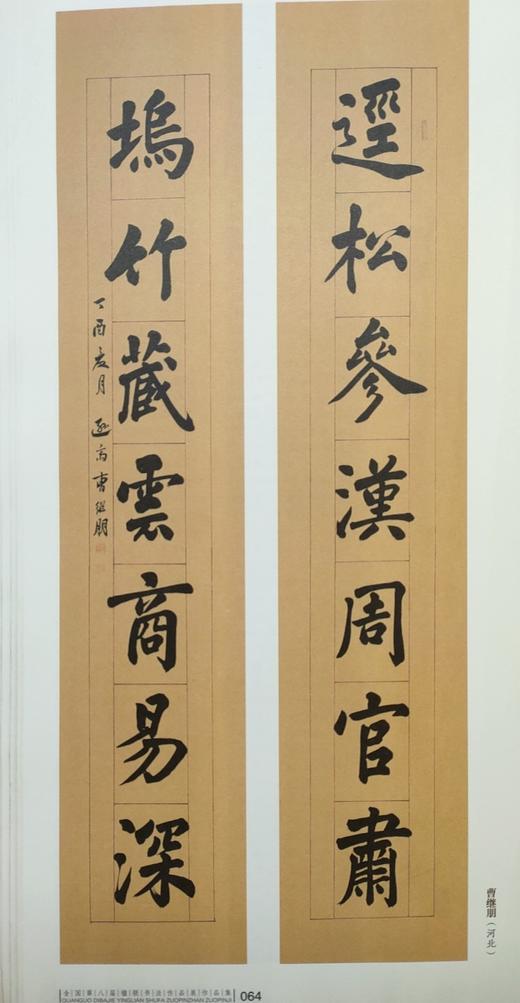 逕松參漢周官肅
塢竹藏雲商易深
丁酉夏月逊斋曹继朋
曹继朋（河北）
全国第八届楹联书法作品展作品集
QUANGUO DIBAJIE YINGLIAN SHUFA ZUOPINZHAN ZUOPINJI
064